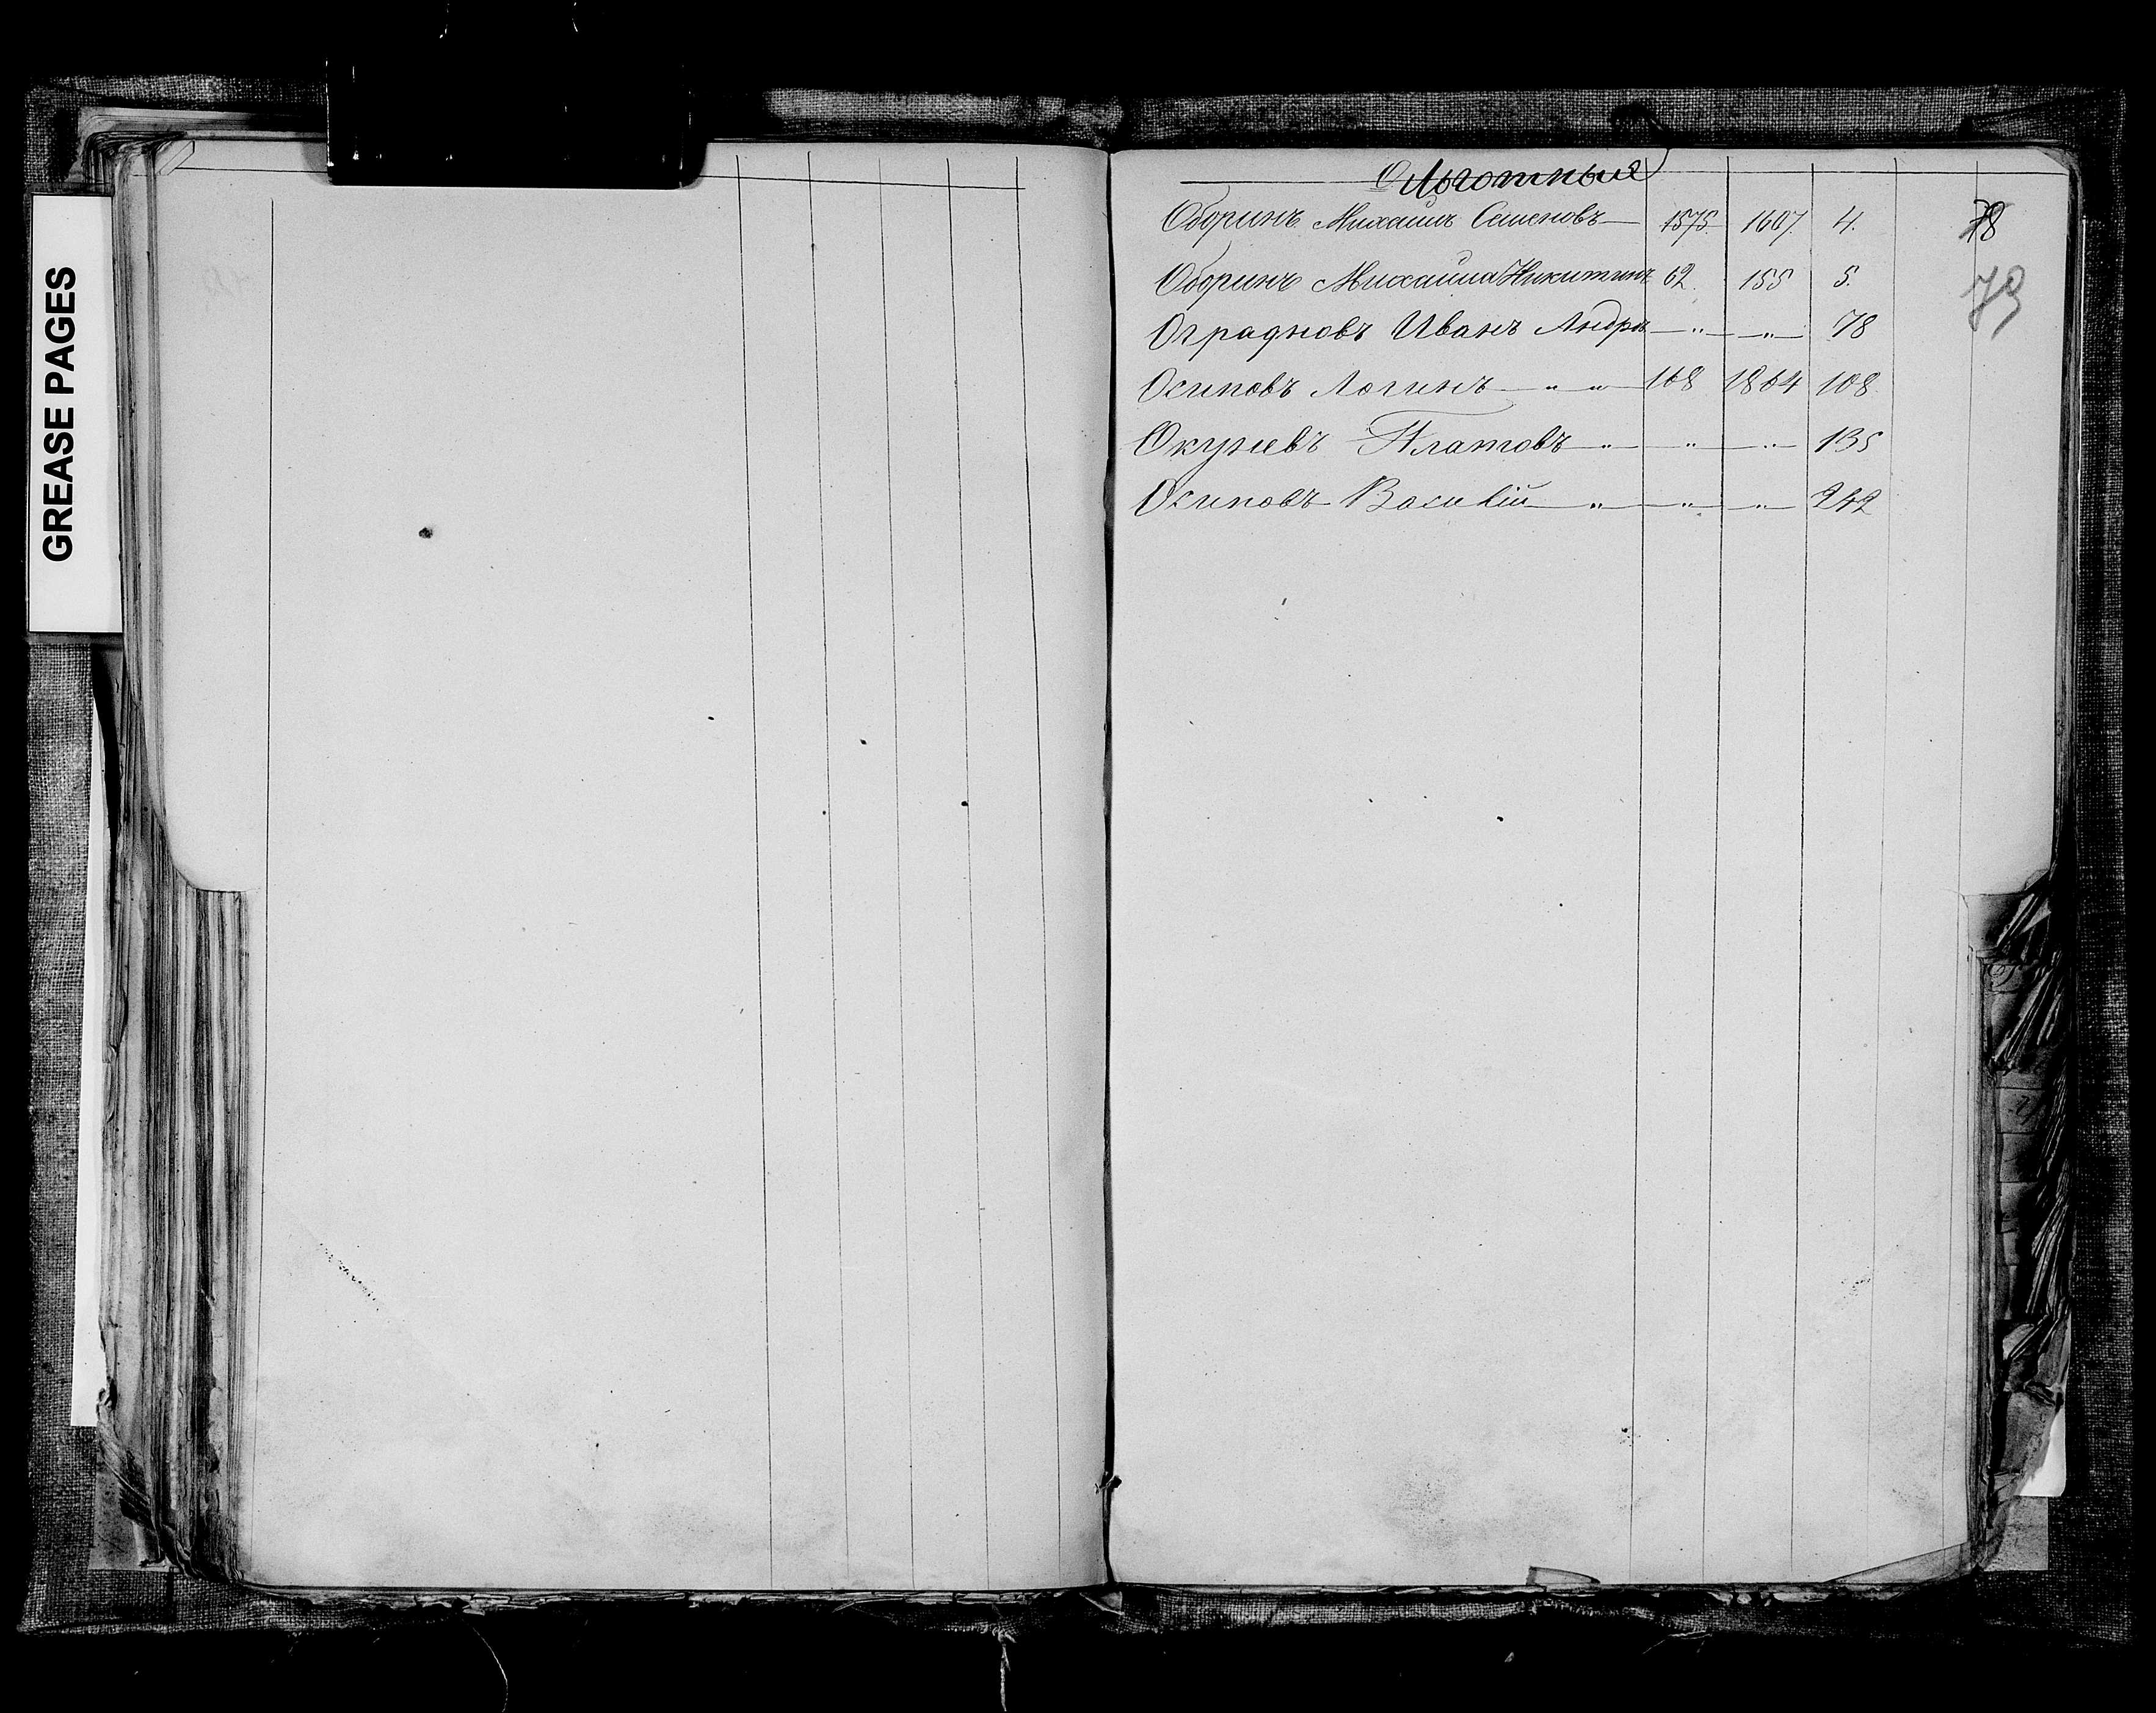 GREASE PAGES
О Льготныя
Оборинъ Михаилъ Семеновъ — 1575. 1607. 4. 78
Оборинъ Михаила Никитинъ 62. 155 5. 79
Оградновъ Иванъ Андре — „ — „ — 78
Осиповъ Логинъ — „ „ — 168 1864 108
Окуневъ Платовъ — „ — „ — „ — 135
Осиповъ Василій — „ — „ — „ — 242